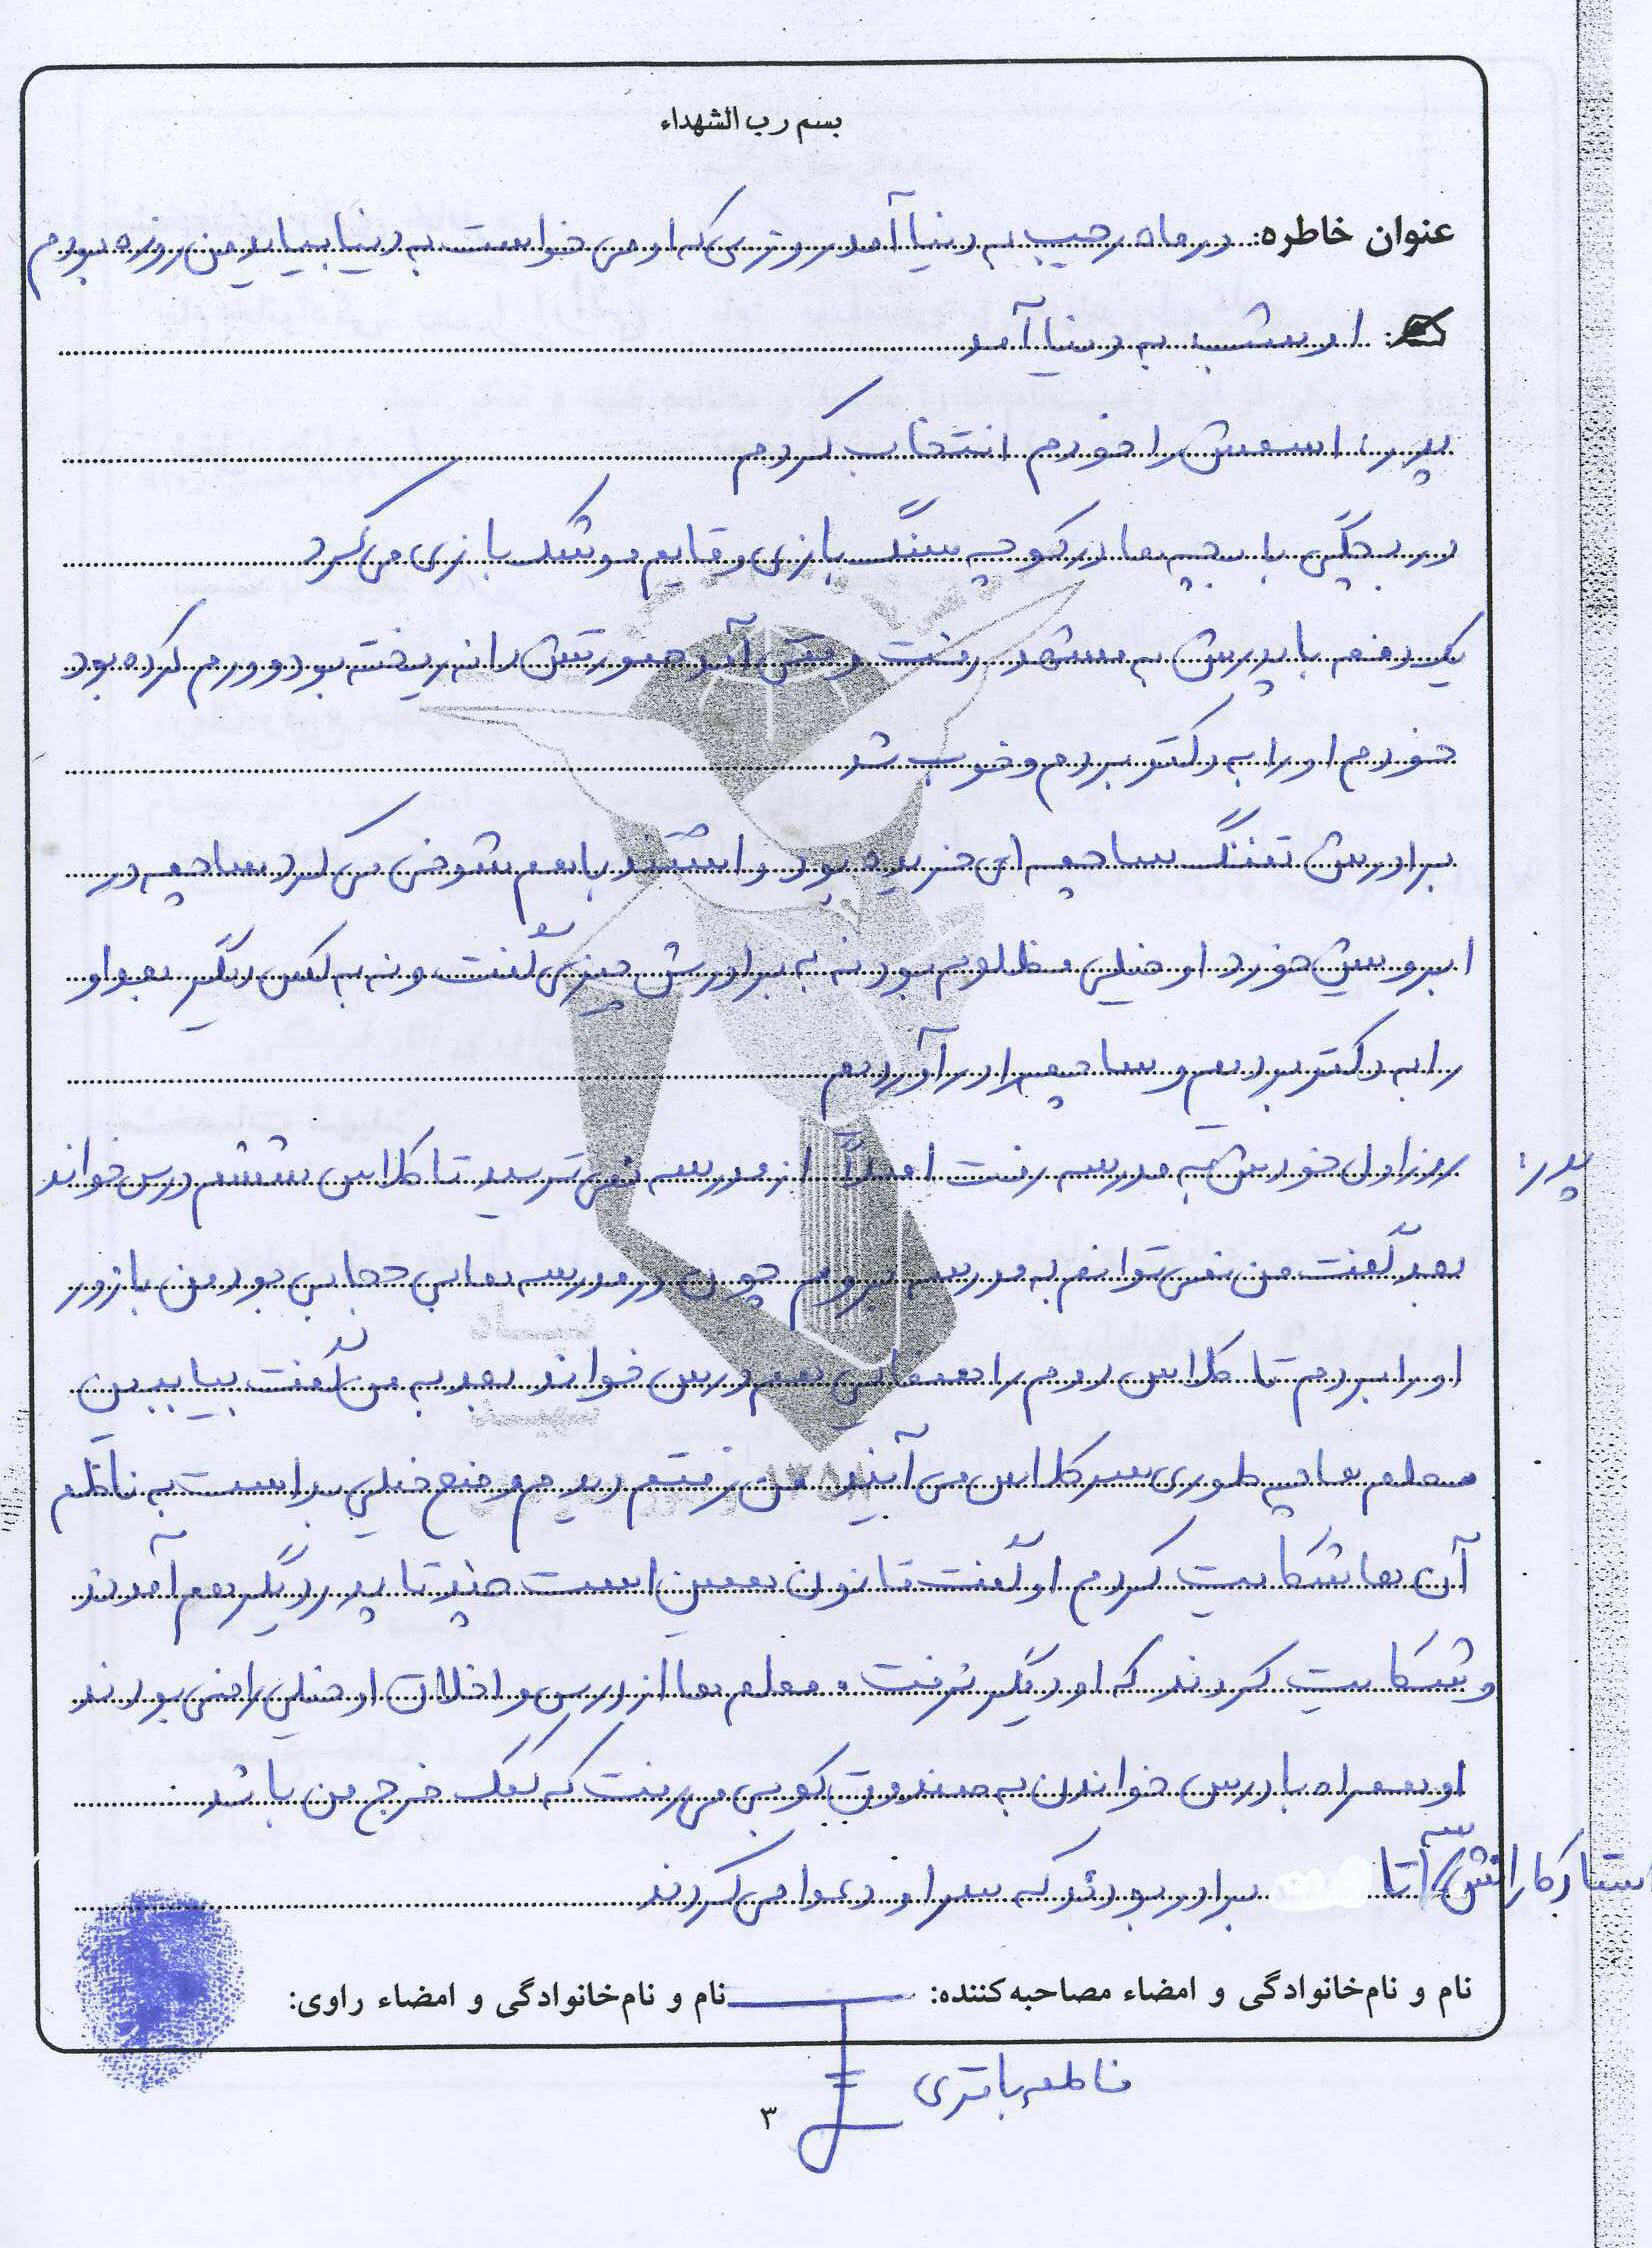 بسم رب الشهداء
عنوان خاطره: در ماه رجب به دنیا آمد روزی که او می خواست به دنیا بیاید من روزه بودم
او شب به دنیا آمد
پدر: اسمش را خودم انتخاب کردم
در بچگی با بچه ها در کوچه سنگ بازی و قایم موشک بازی می کرد
یک دفعه با پدرش به مشهد رفت وقتی آمد صورتش دانه ریخته بود و ورم کرده بود
خودم او را به دکتر بردم و خوب شد
برادرش تفنگ ساچمه ای خریده بود داشتند باهم شوخی می کرد ساچمه در
ابرویش خورد او خیلی مظلوم بود نه به برادرش چیزی گفت و نه به کس دیگر بعد او
را به دکتر بردیم و ساچمه را در آوردیم
پدر: روز اول خودش به مدرسه رفت اصلاً از مدرسه نمی ترسید تا کلاس ششم درس خواند
بعد گفت من نمی توانم به مدرسه بروم چون در مدرسه ها بی حجابی بود من با زور
او را بردم تا کلاس دوم راهنمایی هم درس خواند بعد به من گفت بیا ببین
معلم ها چه طوری سر کلاس می آیند من رفتم دیدم وضع خیلی بد است به ناظم
آن ها شکایت کردم او گفت قانون همین است چند تا پدر دیگر هم آمدند
و شکایت کردند که او دیگر نرفت. معلم ها از درس و اخلاق او خیلی راضی بودند
او همراه با درس خواندن به صندوق کوبی می رفت که کمک خرج من باشد.
استاد کارانش آقا برادر بودند که سر او دعوا می کردند
نام و نام‌خانوادگی و امضاء مصاحبه‌کننده: نام و نام‌خانوادگی و امضاء راوی:
فاطمه باقری
۳